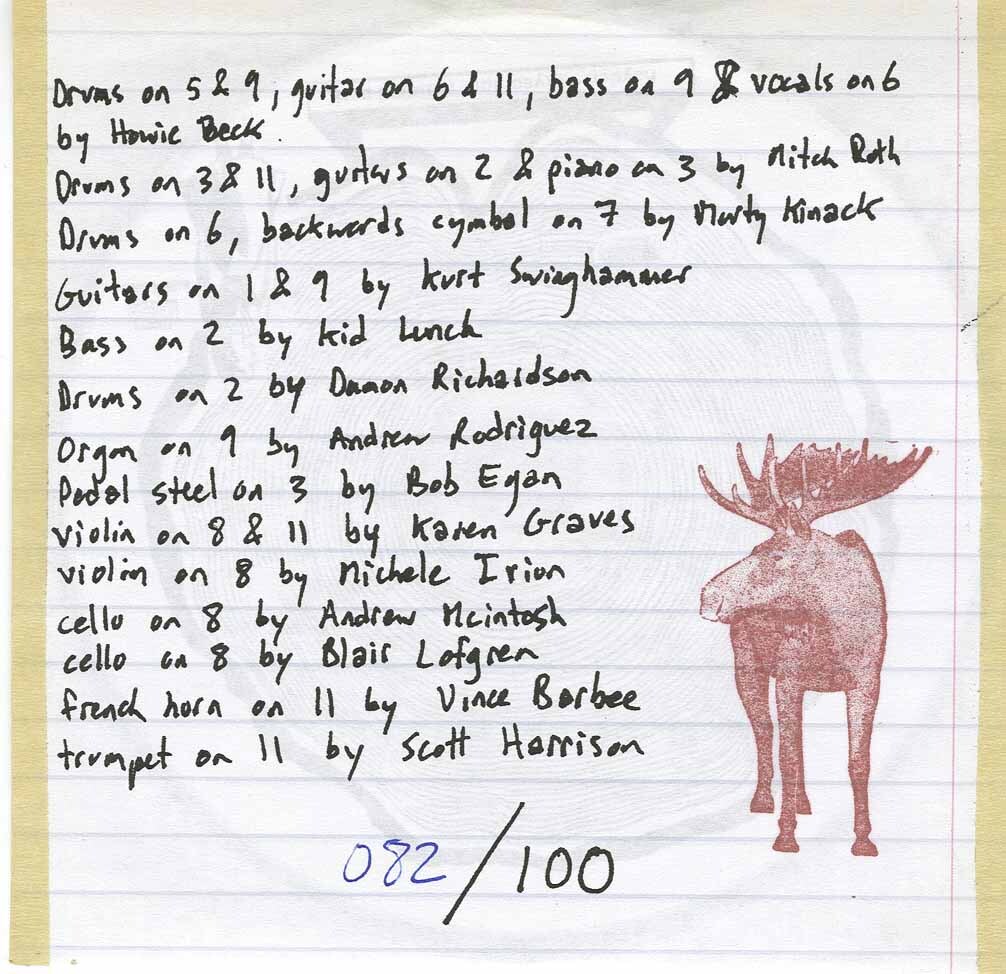 Drums on 5 & 9, guitar on 6 & 11, bass on 9 & vocals on 6
by Howie Beck.
Drums on 3 & 11, guitars on 2 & piano on 3 by Mitch Roth
Drums on 6, backwards cymbal on 7 by Marty Kinack
Guitars on 1 & 9 by Kurt Swinghammer
Bass on 2 by Kid Lunch
Drums on 2 by Damon Richardson
Organ on 9 by Andrew Rodriguez
Pedal steel on 3 by Bob Egan
violin on 8 & 11 by Karen Graves
violin on 8 by Michele Irion
cello on 8 by Andrew Mcintosh
cello on 8 by Blair Lofgren
french horn on 11 by Vince Barbee
trumpet on 11 by Scott Harrison
082/100